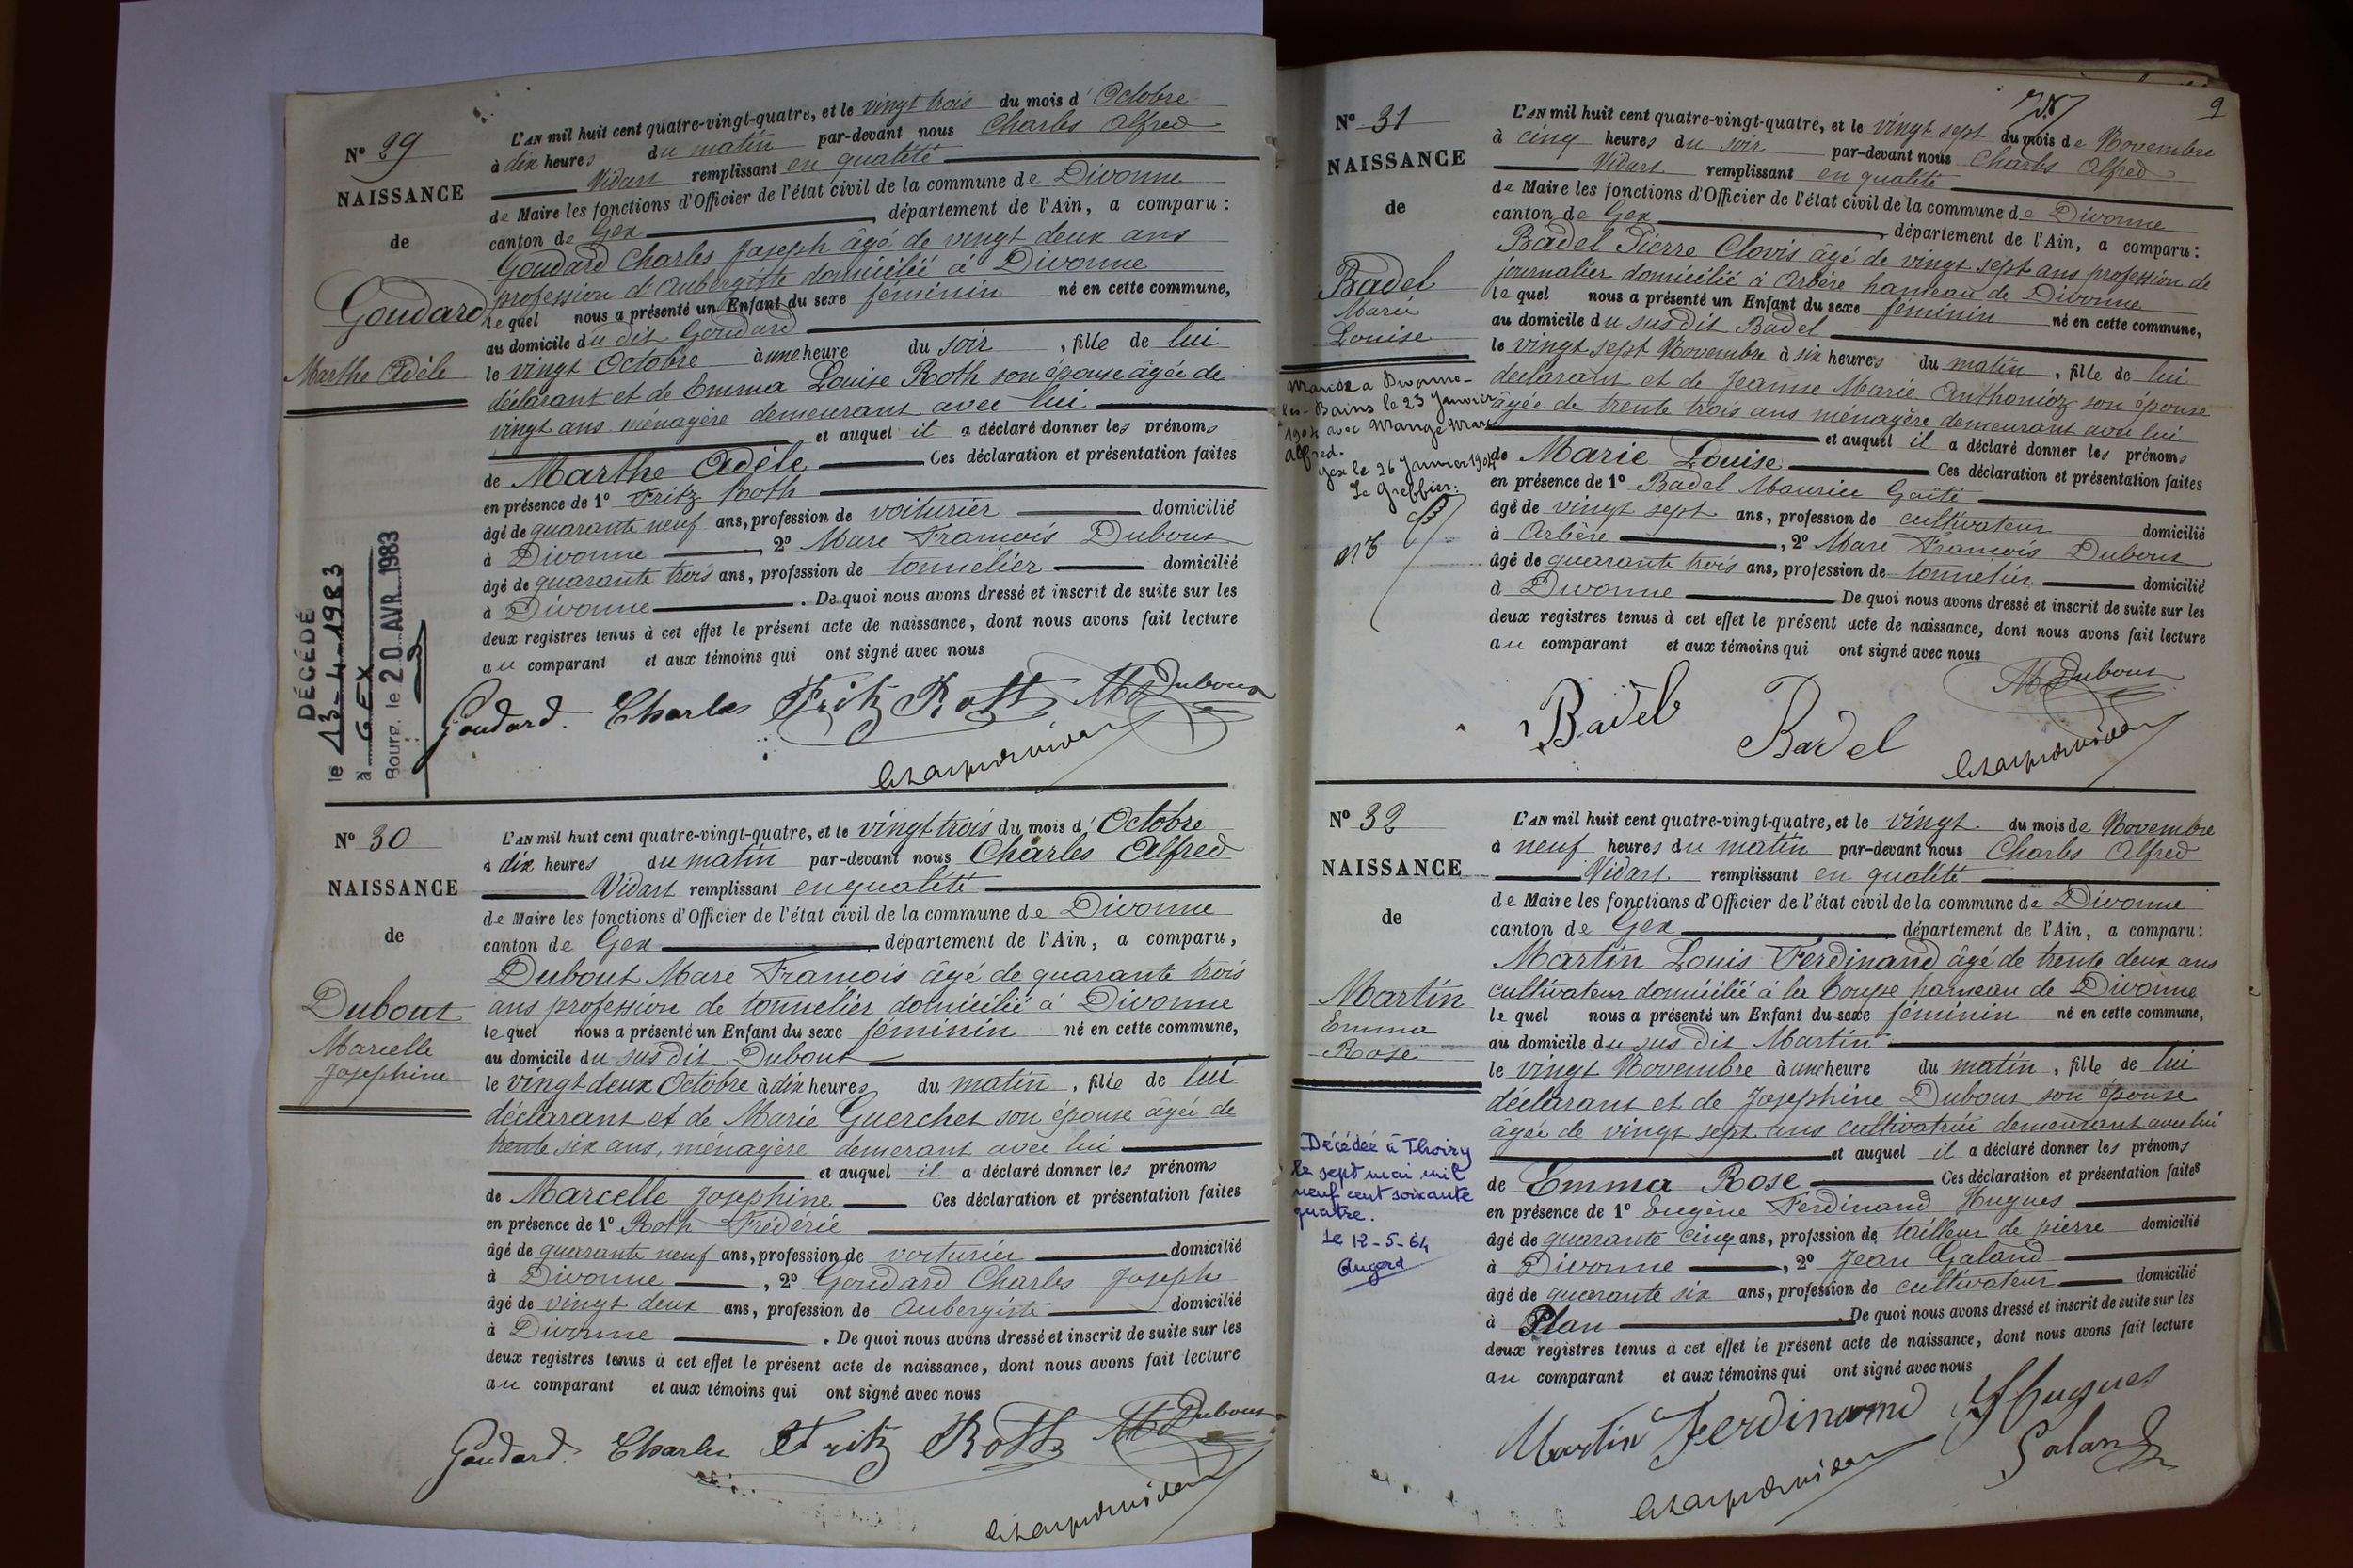 N° 29
NAISSANCE
de
Goudard
Marthe Adèle
DÉCÉDÉ
le 13-4-1983
à GEX
Bourg, le 20 AVR. 1983
L'AN mil huit cent quatre-vingt-quatre, et le vingt trois du mois d'Octobre
à dix heures du matin par-devant nous Charles Alfred
Vidart remplissant en qualité
de Maire les fonctions d'Officier de l'état civil de la commune de Divonne
canton de Gex, département de l'Ain, a comparu :
Goudard Charles Joseph âgé de vingt deux ans
profession d'Aubergiste domicilié à Divonne
lequel nous a présenté un Enfant du sexe féminin né en cette commune,
au domicile du dit Goudard
le vingt Octobre à une heure du soir, fille de lui
déclarant et de Emma Louise Roth son épouse âgée de
vingt ans ménagère demeurant avec lui
et auquel il a déclaré donner les prénoms
de Marthe Adèle Ces déclaration et présentation faites
en présence de 1° Fritz Roth
âgé de quarante neuf ans, profession de voiturier domicilié
à Divonne, 2° Marc François Dubout
âgé de quarante trois ans, profession de tonnelier domicilié
à Divonne. De quoi nous avons dressé et inscrit de suite sur les
deux registres tenus à cet effet le présent acte de naissance, dont nous avons fait lecture
au comparant et aux témoins qui ont signé avec nous
Goudard Charles Fritz Roth M Dubout
N° 30
NAISSANCE
de
Dubout
Marcelle
Josephine
L'AN mil huit cent quatre-vingt-quatre, et le vingt trois du mois d'Octobre
à dix heures du matin par-devant nous Charles Alfred
Vidart remplissant en qualité
de Maire les fonctions d'Officier de l'état civil de la commune de Divonne
canton de Gex, département de l'Ain, a comparu,
Dubout Marc François âgé de quarante trois
ans profession de tonnelier domicilié à Divonne
lequel nous a présenté un Enfant du sexe féminin né en cette commune,
au domicile du sus dit Dubout
le vingt deux Octobre à dix heures du matin, fille de lui
déclarant et de Marie Guerchet son épouse âgée de
trente six ans, ménagère demerant avec lui
et auquel il a déclaré donner les prénoms
de Marcelle Josephine Ces déclaration et présentation faites
en présence de 1° Roth Frédéric
âgé de quarante neuf ans, profession de voiturier domicilié
à Divonne, 2° Goudard Charles Joseph
âgé de vingt deux ans, profession de Aubergiste domicilié
à Divonne. De quoi nous avons dressé et inscrit de suite sur les
deux registres tenus à cet effet le présent acte de naissance, dont nous avons fait lecture
au comparant et aux témoins qui ont signé avec nous
Goudard Charles Fritz Roth M Dubout
9
N° 31
NAISSANCE
de
Badel
Marie
Louise
Mariée à Divonne-
les-Bains le 23 Janvier
1904 avec Mange Marc
Alfred.
Gex le 26 Janvier 1904
Le Greffier:
L'AN mil huit cent quatre-vingt-quatre, et le vingt sept du mois de Novembre
à cinq heures du soir par-devant nous Charles Alfred
Vidart remplissant en qualité
de Maire les fonctions d'Officier de l'état civil de la commune de Divonne
canton de Gex, département de l'Ain, a comparu :
Badel Pierre Clovis âgé de vingt sept ans profession de
journalier domicilié à Arbère hameau de Divonne
lequel nous a présenté un Enfant du sexe féminin né en cette commune,
au domicile du sus dit Badel
le vingt sept Novembre à six heures du matin, fille de lui
déclarant et de Jeanne Marie Anthonioz son épouse
âgée de trente trois ans ménagère demeurant avec lui
et auquel il a déclaré donner les prénoms
de Marie Louise Ces déclaration et présentation faites
en présence de 1° Badel Maurice Gaîté
âgé de vingt sept ans, profession de cultivateur domicilié
à Arbère, 2° Marc François Dubout
âgé de quarante trois ans, profession de tonnelier domicilié
à Divonne De quoi nous avons dressé et inscrit de suite sur les
deux registres tenus à cet effet le présent acte de naissance, dont nous avons fait lecture
au comparant et aux témoins qui ont signé avec nous
M Dubout
Badel Badel
N° 32
NAISSANCE
de
Martin
Emma
Rose
Décédée à Thoiry
le sept mai mil
neuf cent soixante
quatre.
Le 12-5-64
L'AN mil huit cent quatre-vingt-quatre, et le vingt du mois de Novembre
à neuf heures du matin par-devant nous Charles Alfred
Vidart remplissant en qualité
de Maire les fonctions d'Officier de l'état civil de la commune de Divonne
canton de Gex département de l'Ain, a comparu :
Martin Louis Ferdinand âgé de trente deux ans
cultivateur domicilié à la Coupe hameau de Divonne
lequel nous a présenté un Enfant du sexe féminin né en cette commune,
au domicile du sus dit Martin
le vingt Novembre à une heure du matin, fille de lui
déclarant et de Josephine Dubout son épouse
âgée de vingt sept ans cultivatrice demeurant avec lui
et auquel il a déclaré donner les prénoms
de Emma Rose Ces déclaration et présentation faites
en présence de 1° Eugène Ferdinand Hugues
âgé de quarante cinq ans, profession de tailleur de pierre domicilié
à Divonne, 2° Jean Galand
âgé de quarante six ans, profession de cultivateur domicilié
à Plan. De quoi nous avons dressé et inscrit de suite sur les
deux registres tenus à cet effet le présent acte de naissance, dont nous avons fait lecture
au comparant et aux témoins qui ont signé avec nous
Martin Ferdinand Hugues
Galand